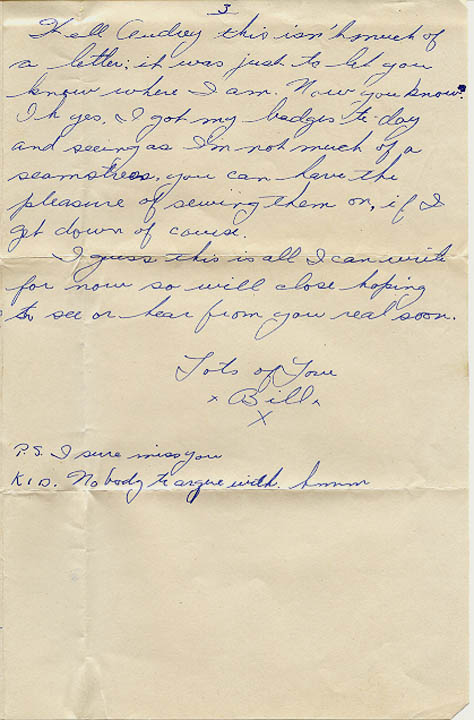 3
Well Audrey this isn't much of
a letter; it was just to let you
know where I am. Now you know.
Oh yes, I got my badges to-day
and seeing as I'm not much of a
seamstress, you can have the
pleasure of sewing them on, if I
get down of course.
I guess this is all I can write
for now so will close hoping
to see or hear from you real soon.
Lots of Love
x Bill x
X
P.S. I sure miss you
KID. Nobody to argue with. hmmm